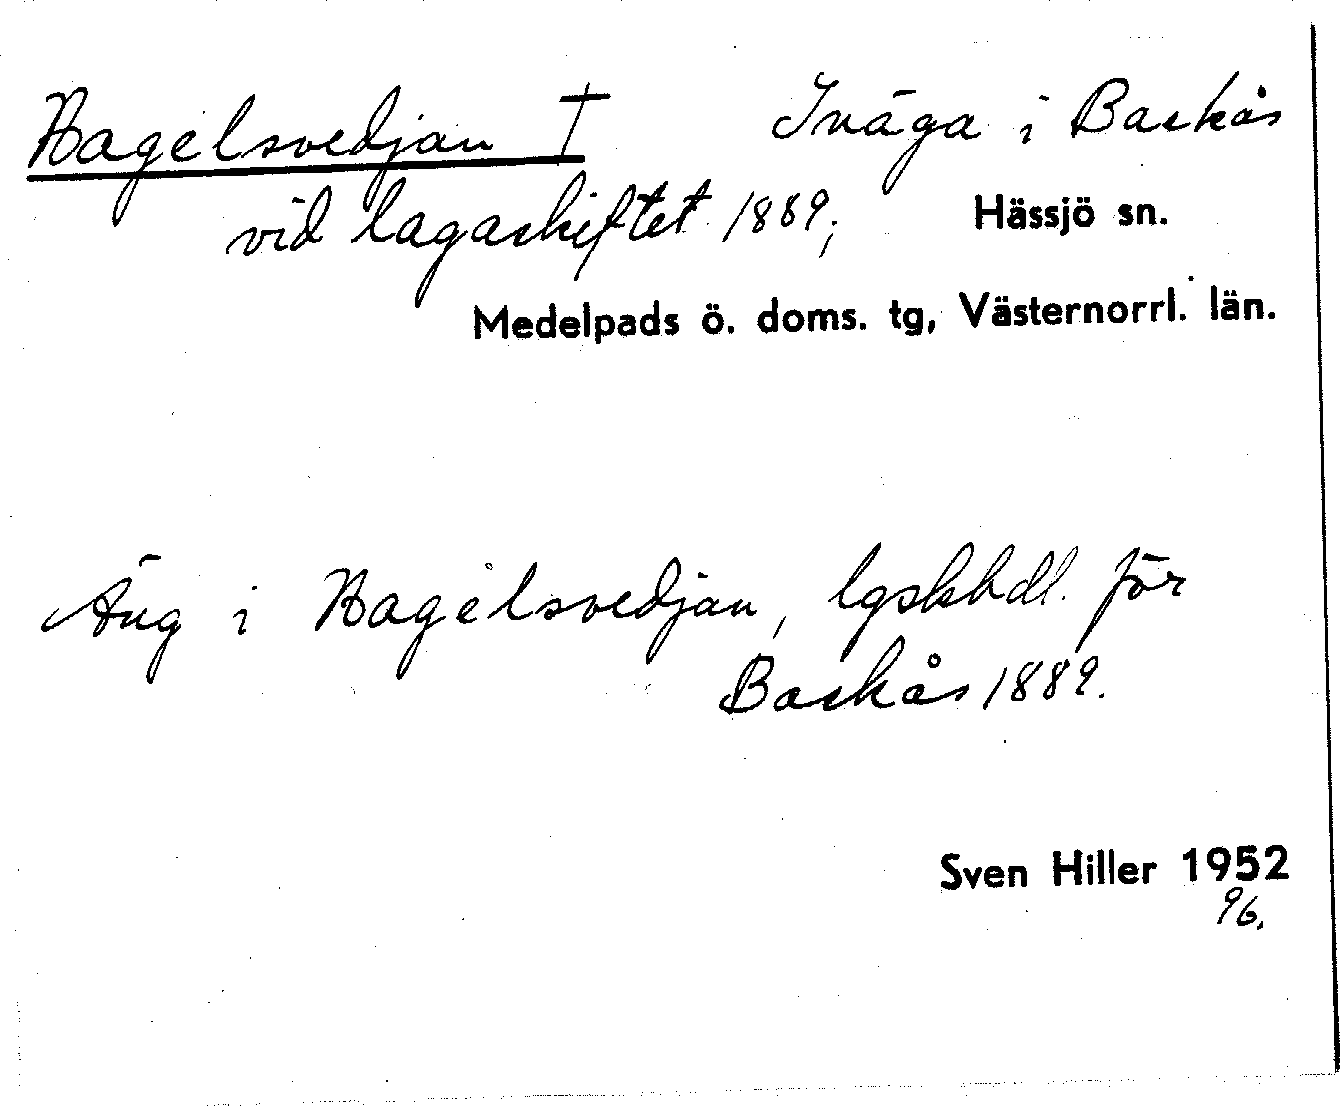 Hagelsvedjan † Inäga i Backås
vid lagaskiftet 1889; Hässjö sn.
Medelpads ö. doms. tg, Västernorrl. län.
Äng i Hagelsvedjan, lgskhdl. för
Backås 1889.
Sven Hiller 1952
96.